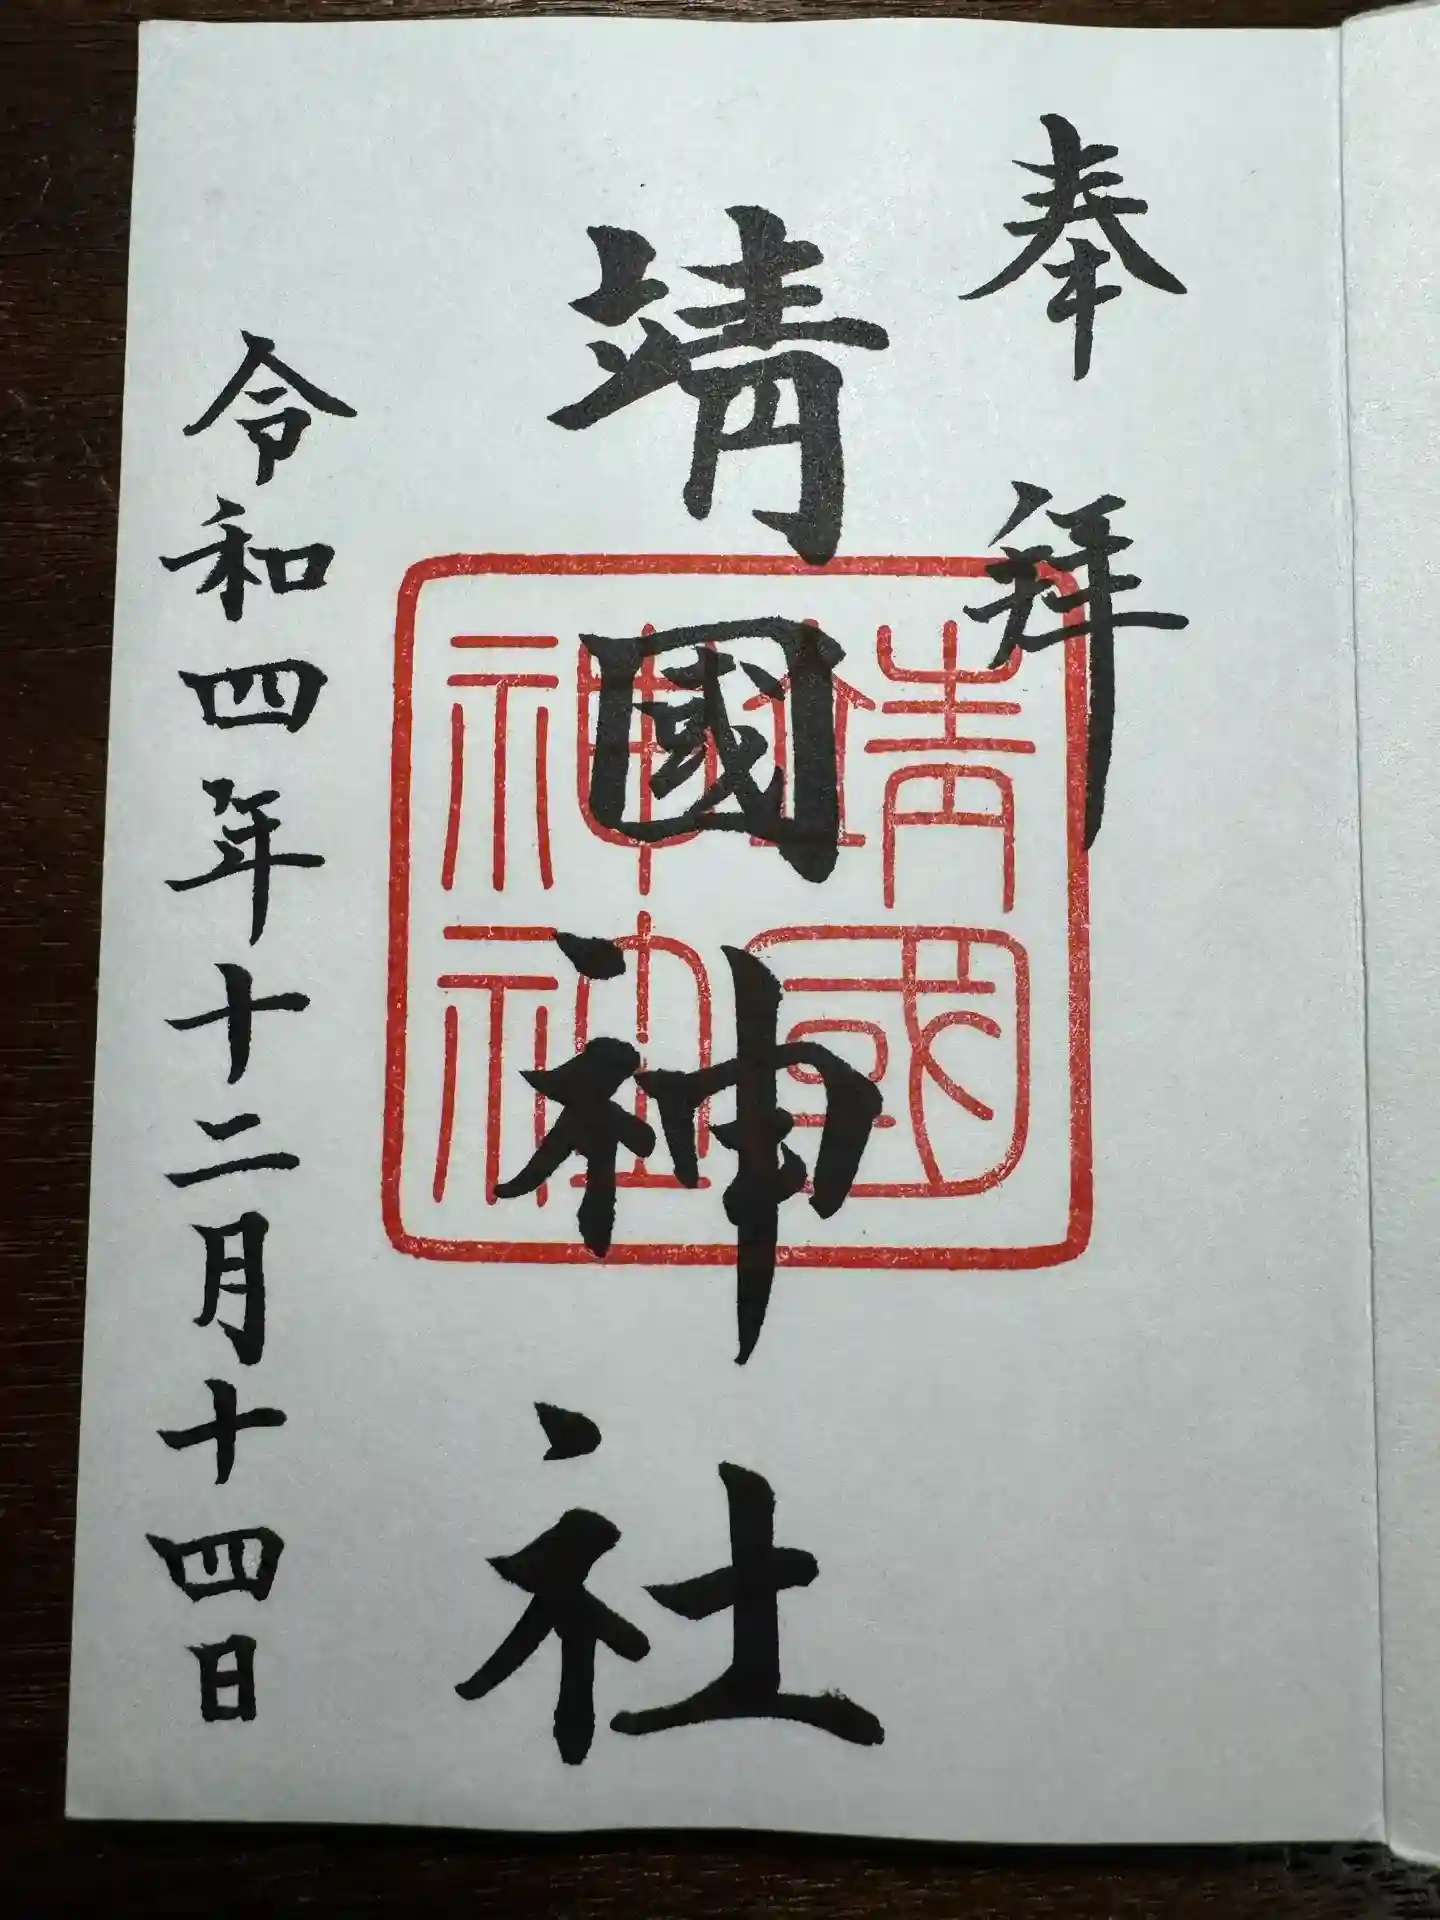 奉拝
靖國神社
靖國
神社
令和四年十二月十四日